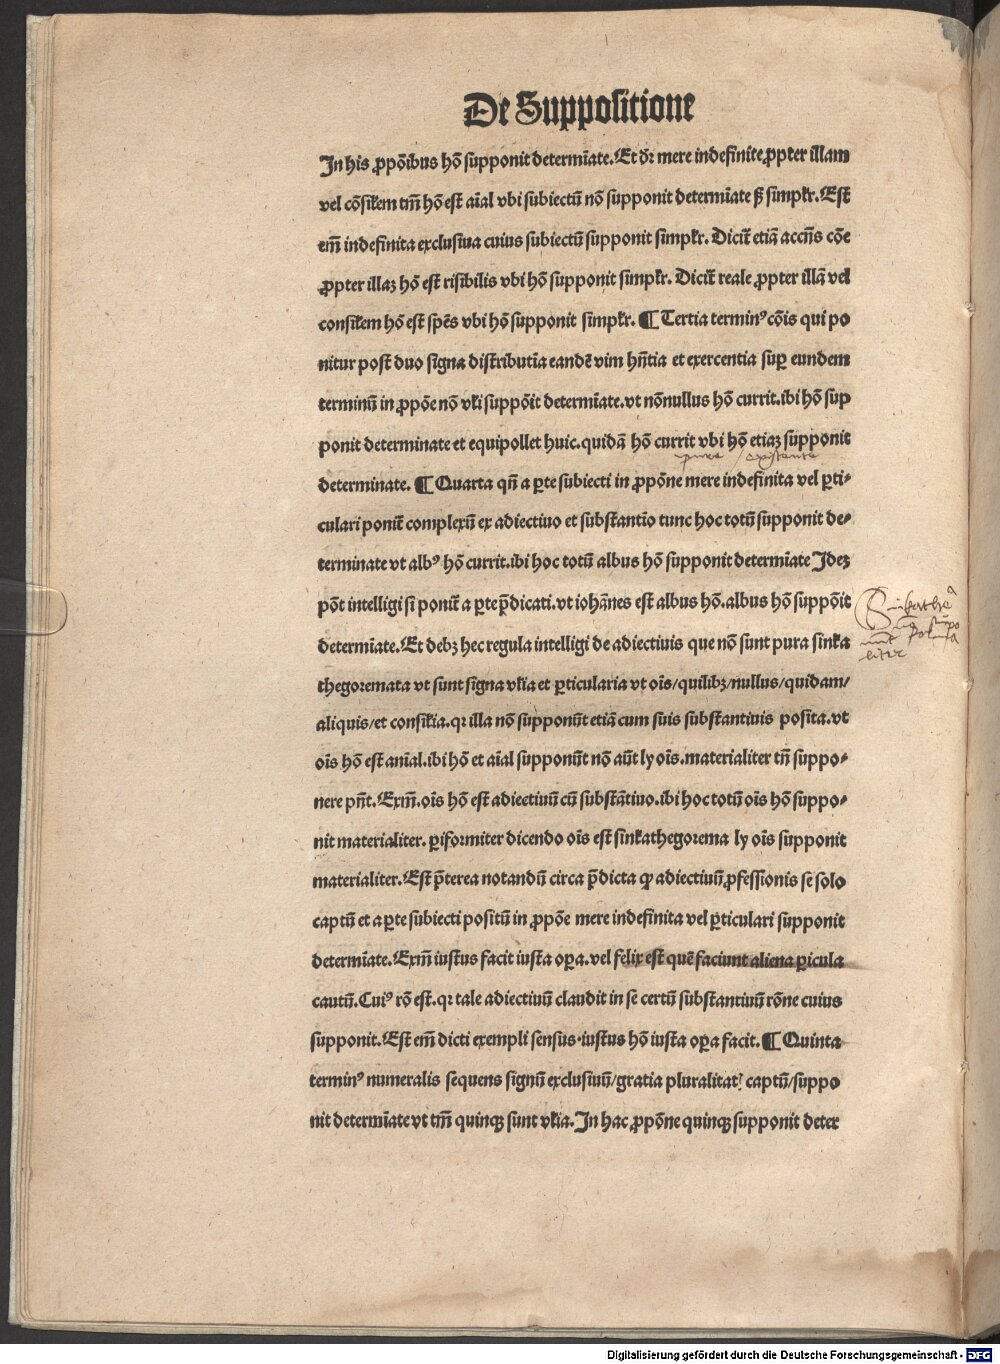 De Suppositione
In his ꝓpõibus hõ supponit determĩate. Et dr̃ mere indefinite ꝓpter illam
vel cõsilem tm̃ hõ est aĩal vbi subiectũ nõ supponit determĩate sꝫ simplr. Est
em̃ indefinita exclusiua cuius subiectũ supponit simplr. Dicit̃ etiã accñs cõe
ꝓpter illaꝫ hõ est risibilis vbi hõ supponit simplr. Dicit̃ reale ꝓpter illã vel
consilem hõ est spẽs vbi hõ supponit simplr. ¶ Tertia terminꝰ cõis qui po
nitur post duo signa distributĩa eandẽ vim hñtia et exercentia suꝑ eundem
terminũ in ꝓpõe nõ vli suppõit determĩate. vt nõnullus hõ currit. ibi hõ sup
ponit determinate et equipollet huic. quidã hõ currit vbi hõ etiaꝫ supponit
pure existente
determinate. ¶ Quarta qñ a ꝑte subiecti in ꝓpõne mere indefinita vel ꝑti⸗
culari ponit̃ complexũ ex adiectiuo et substantĩo tunc hoc totũ supponit de⸗
terminate vt albꝰ hõ currit. ibi hoc totũ albus hõ supponit determĩate Jdeꝫ
põt intelligi si ponit̃ a ꝑte p̃dicati. vt iohãnes est albus hõ. albus hõ suppõit
determĩate. Et debꝫ hec regula intelligi de adiectiuis que nõ sunt pura sinka
thegoremata vt sunt signa vlia et ꝑticularia vt oĩs/quilibꝫ/nullus/quidam/
aliquis/et consilia. qꝛ illa nõ supponũt etiã cum suis substantiuis posita. vt
oĩs hõ est anĩal. ibi hõ et aĩal supponũt nõ aũt ly oĩs. materialiter tñ suppo⸗
nere pñt. Exm̃. oĩs hõ est adiectiuũ cũ substãtiuo. ibi hoc totũ oĩs hõ suppo⸗
nit materialiter. ꝑiformiter dicendo oĩs est sinkathegorema ly oĩs supponit
materialiter. Est p̃terea notandũ circa p̃dicta ꝙ adiectiuũ ꝓfessionis se solo
captũ et a ꝑte subiecti positũ in ꝓpõe mere indefinita vel ꝑticulari supponit
determĩate. Exm̃ iustus facit iusta oꝑa. vel felix est quẽ faciunt aliena ꝑicula
cautũ. Cuiꝰ rõ est. qꝛ tale adiectiuũ claudit in se certũ substantiuũ rõne cuius
supponit. Est em̃ dicti exempli sensus. iustus hõ iusta oꝑa facit. ¶ Quinta
terminꝰ numeralis sequens signũ exclusiuũ/gratia pluralitatꝭ captũ/suppo
nit determĩate vt tm̃ quinqꝫ sunt vlia. Jn hac ꝓpõne quinqꝫ supponit deter
Digitalisierung gefördert durch die Deutsche Forschungsgemeinschaft - DFG